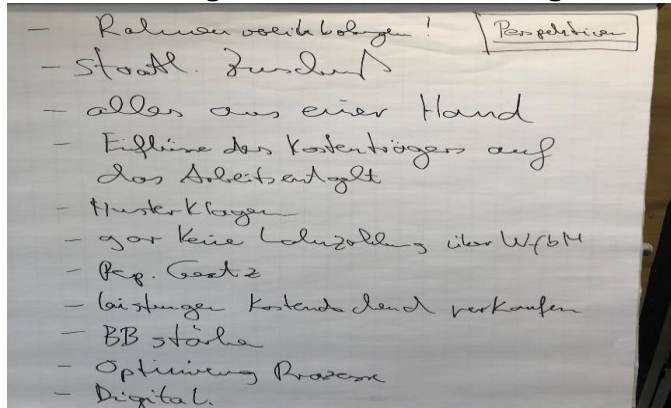 - Rahmenvereinbarungen! Perspektiven
- staatl. Zuschuß
- alles aus einer Hand
- Einflüsse des Kostenträgers auf
das Arbeitsentgelt
- Musterklagen
- gar keine Lohnzahlung über WfbM
- Gesetz
- Leistungen kostendeckend verkaufen
- BB stärken
- Optimierung Prozesse
- Digital.